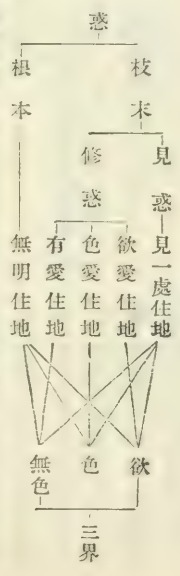 惑
枝末
根本
見惑
修惑
見一處住地
欲愛住地
色愛住地
有愛住地
無明住地
欲
色
無色
三界